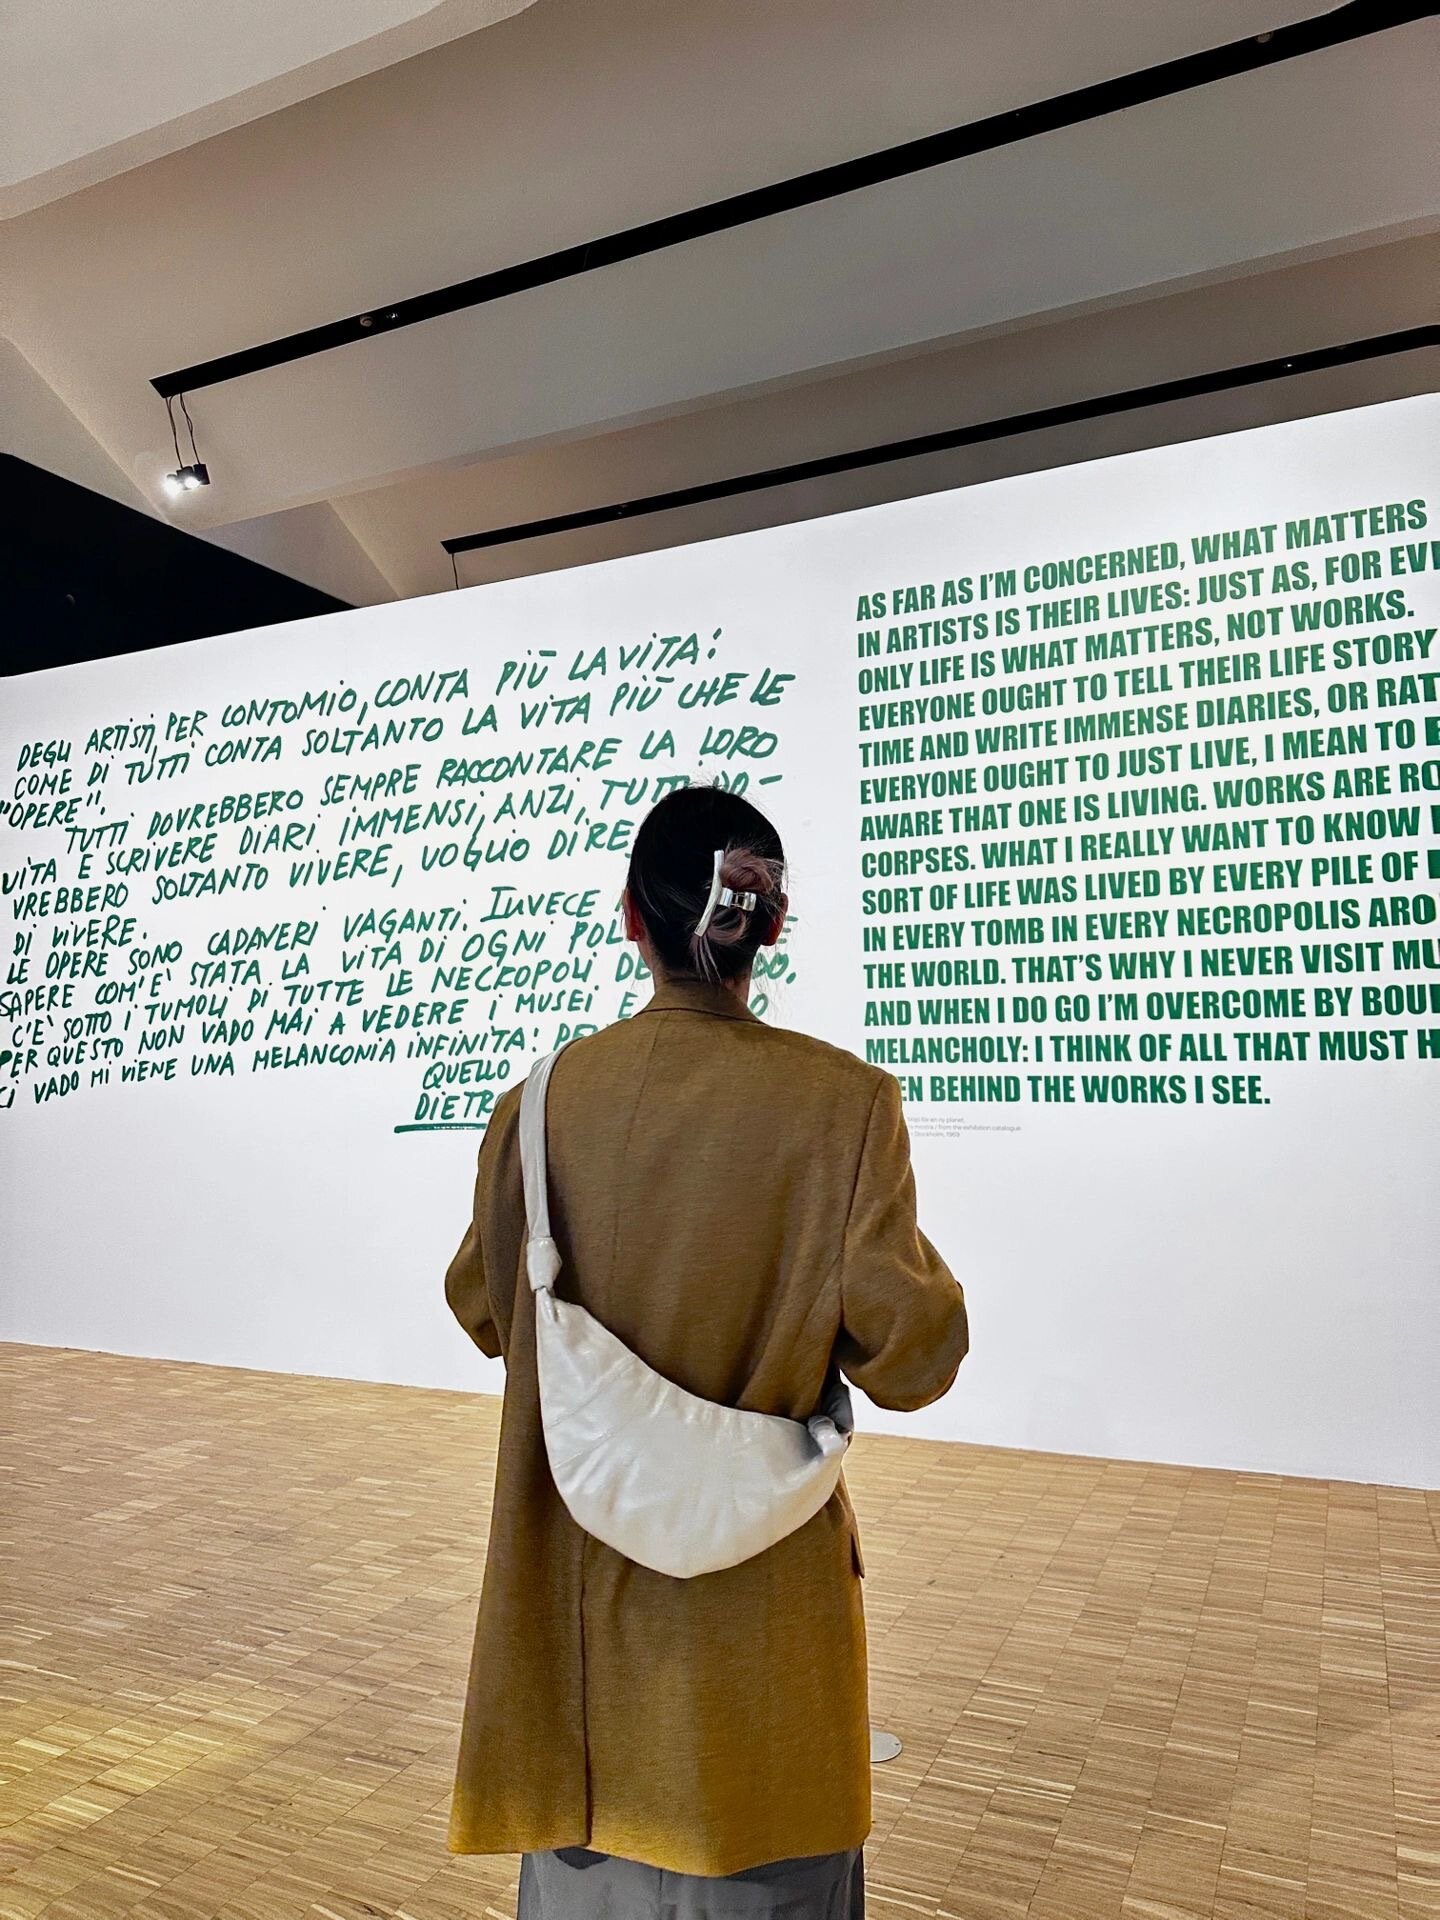 DEGLI ARTISTI, PER CONTO MIO, CONTA PIÙ LA VITA:
COME DI TUTTI CONTA SOLTANTO LA VITA PIÙ CHE LE
"OPERE".
TUTTI DOVREBBERO SEMPRE RACCONTARE LA LORO
VITA E SCRIVERE DIARI IMMENSI, ANZI, TUTTI DO-
VREBBERO SOLTANTO VIVERE, VOGLIO DIRE
DI VIVERE.
LE OPERE SONO CADAVERI VAGANTI. INVECE
SAPERE COM'È STATA LA VITA DI OGNI
C'È SOTTO I TUMOLI DI TUTTE LE NECROPOLI
PER QUESTO NON VADO MAI A VEDERE I MUSEI E
CI VADO MI VIENE UNA MELANCONIA INFINITA:
QUELLO
DIETRO
AS FAR AS I'M CONCERNED, WHAT MATTERS
IN ARTISTS IS THEIR LIVES: JUST AS, FOR
ONLY LIFE IS WHAT MATTERS, NOT WORKS.
EVERYONE OUGHT TO TELL THEIR LIFE STORY
TIME AND WRITE IMMENSE DIARIES, OR
EVERYONE OUGHT TO JUST LIVE, I MEAN TO
AWARE THAT ONE IS LIVING. WORKS ARE
CORPSES. WHAT I REALLY WANT TO KNOW
SORT OF LIFE WAS LIVED BY EVERY PILE OF
IN EVERY TOMB IN EVERY NECROPOLIS
THE WORLD. THAT'S WHY I NEVER VISIT
AND WHEN I DO GO I'M OVERCOME BY
MELANCHOLY: I THINK OF ALL THAT MUST
BEHIND THE WORKS I SEE.
en ny planet,
mostra / from the exhibition catalogue
Stockholm, 1969